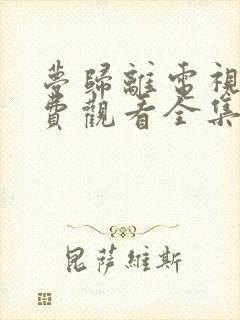 夢歸離電視
費觀看全集
昆薩維斯